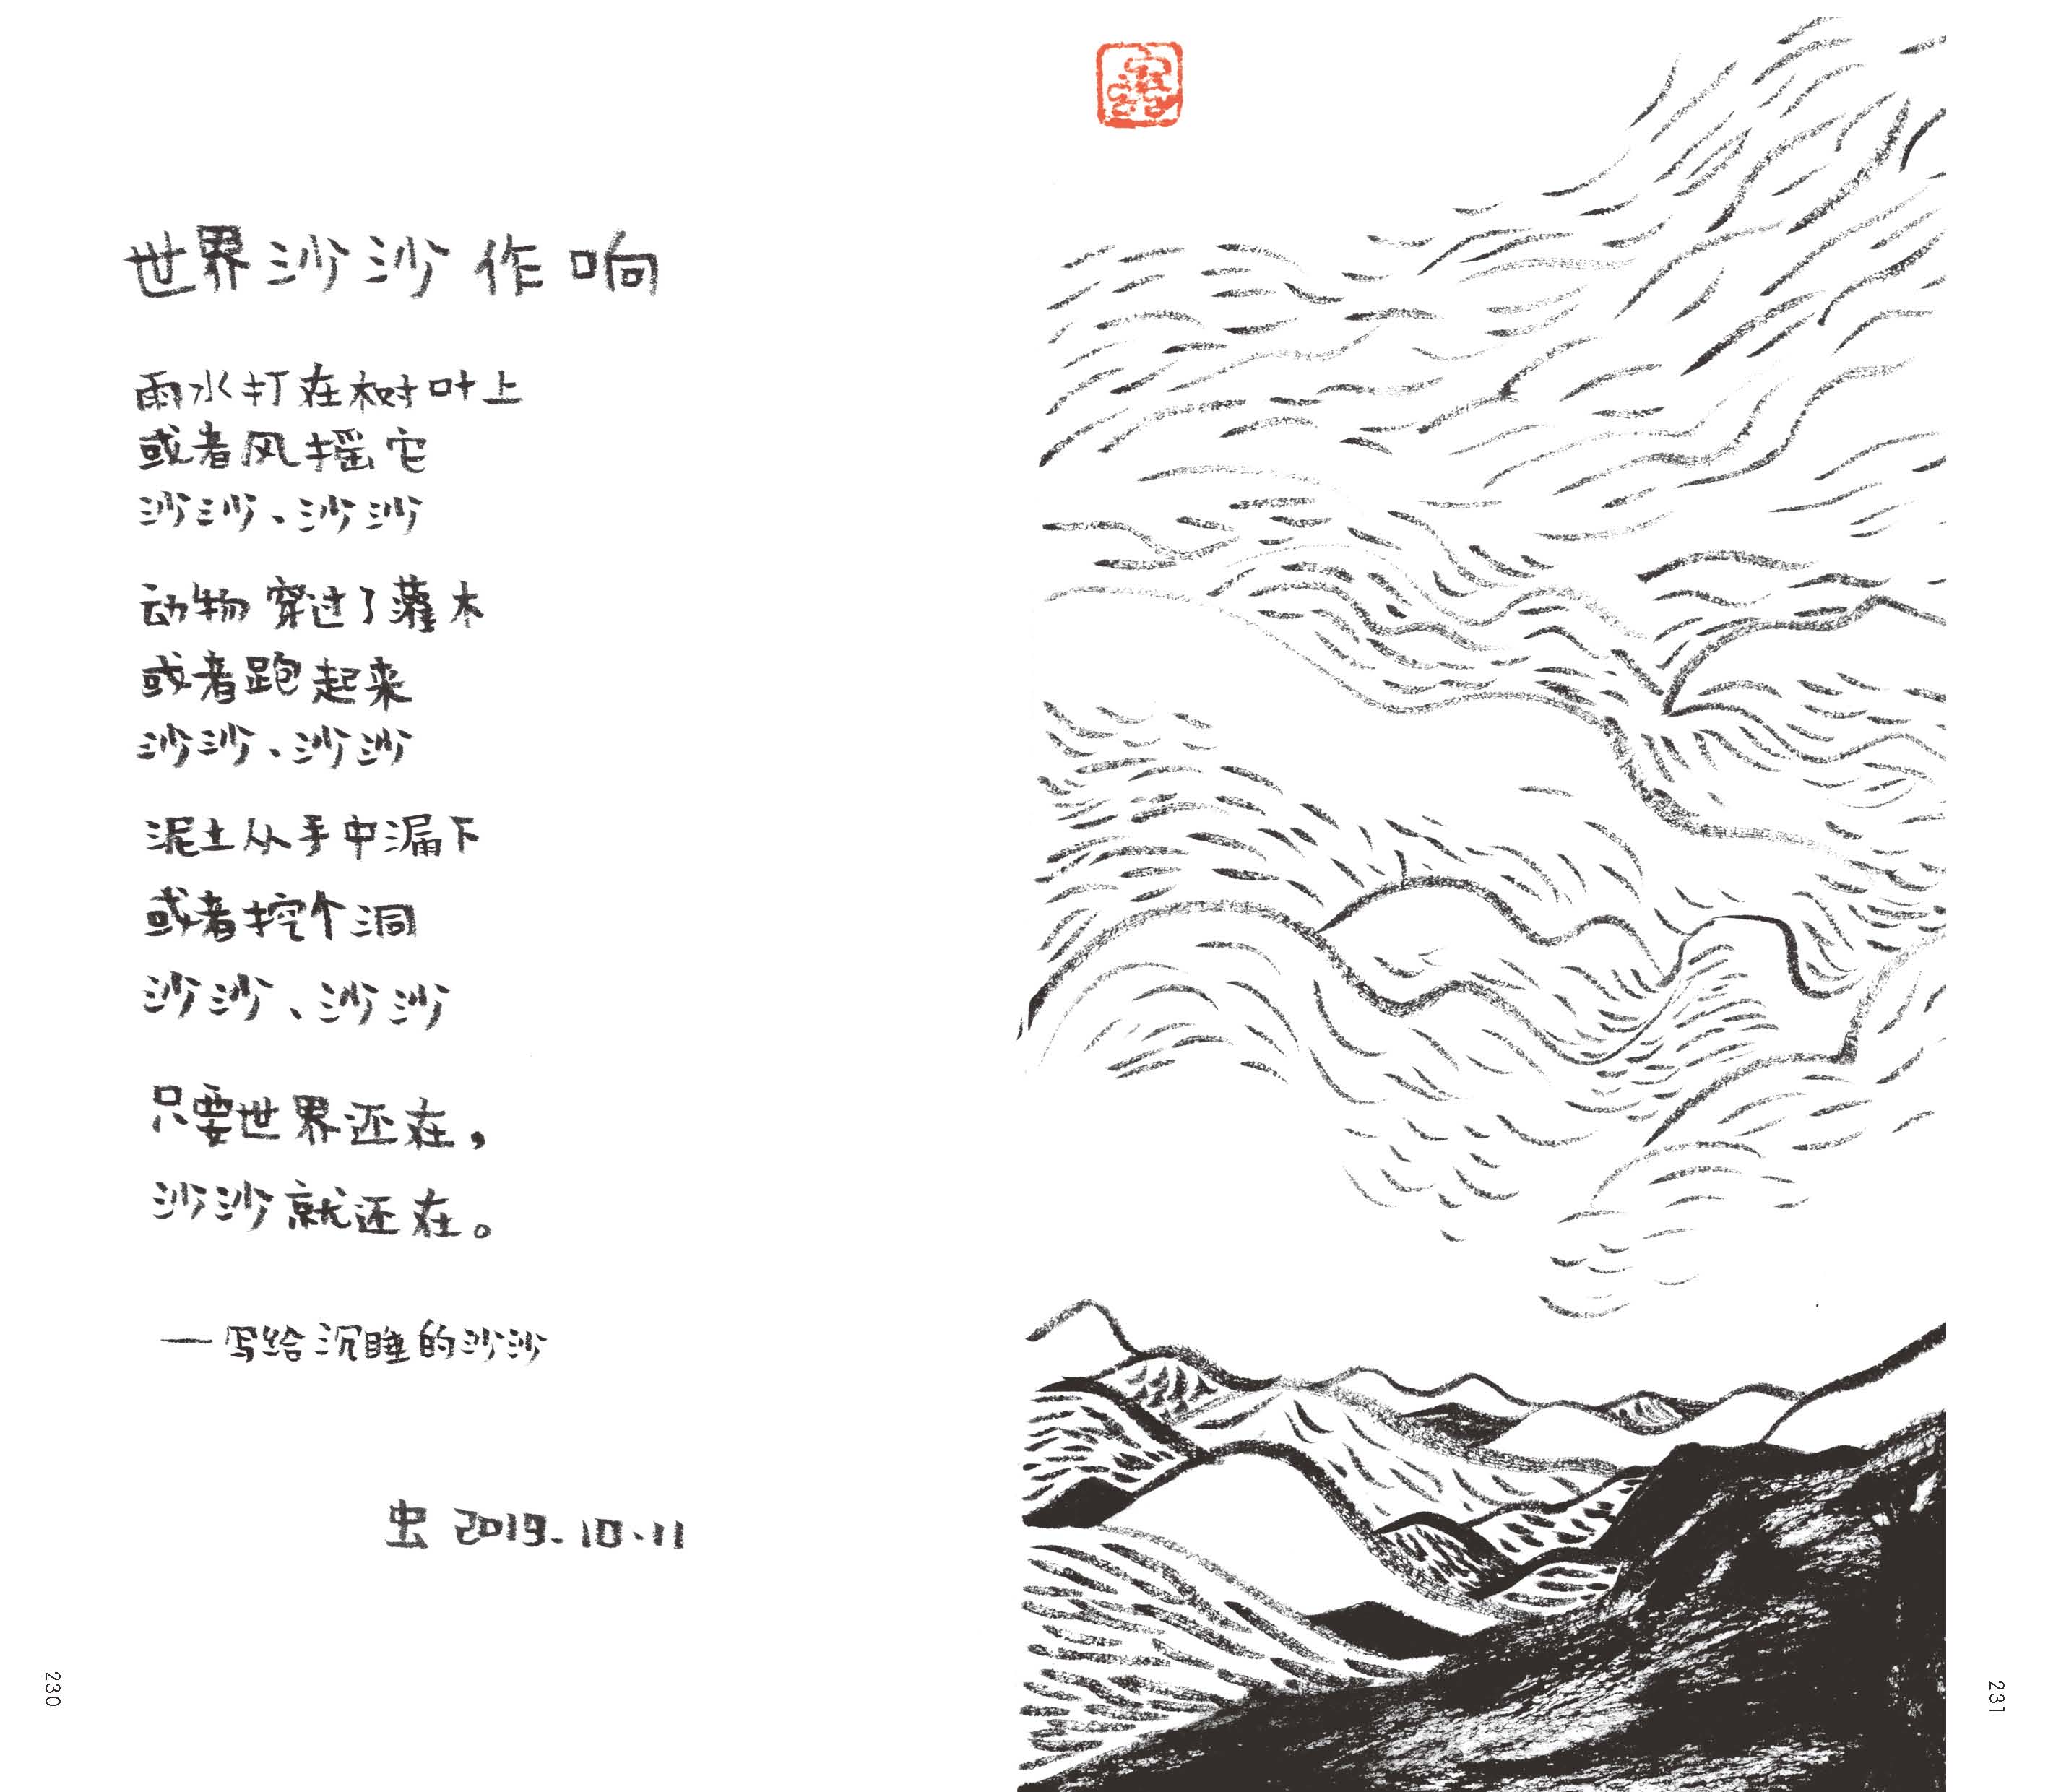 世界沙沙作响
雨水打在树叶上
或者风摇它
沙沙、沙沙
动物穿过了灌木
或者跑起来
沙沙、沙沙
泥土从手中漏下
或者挖个洞
沙沙、沙沙
只要世界还在，
沙沙就还在。
—写给沉睡的沙沙
虫 2019-10-11
230
231